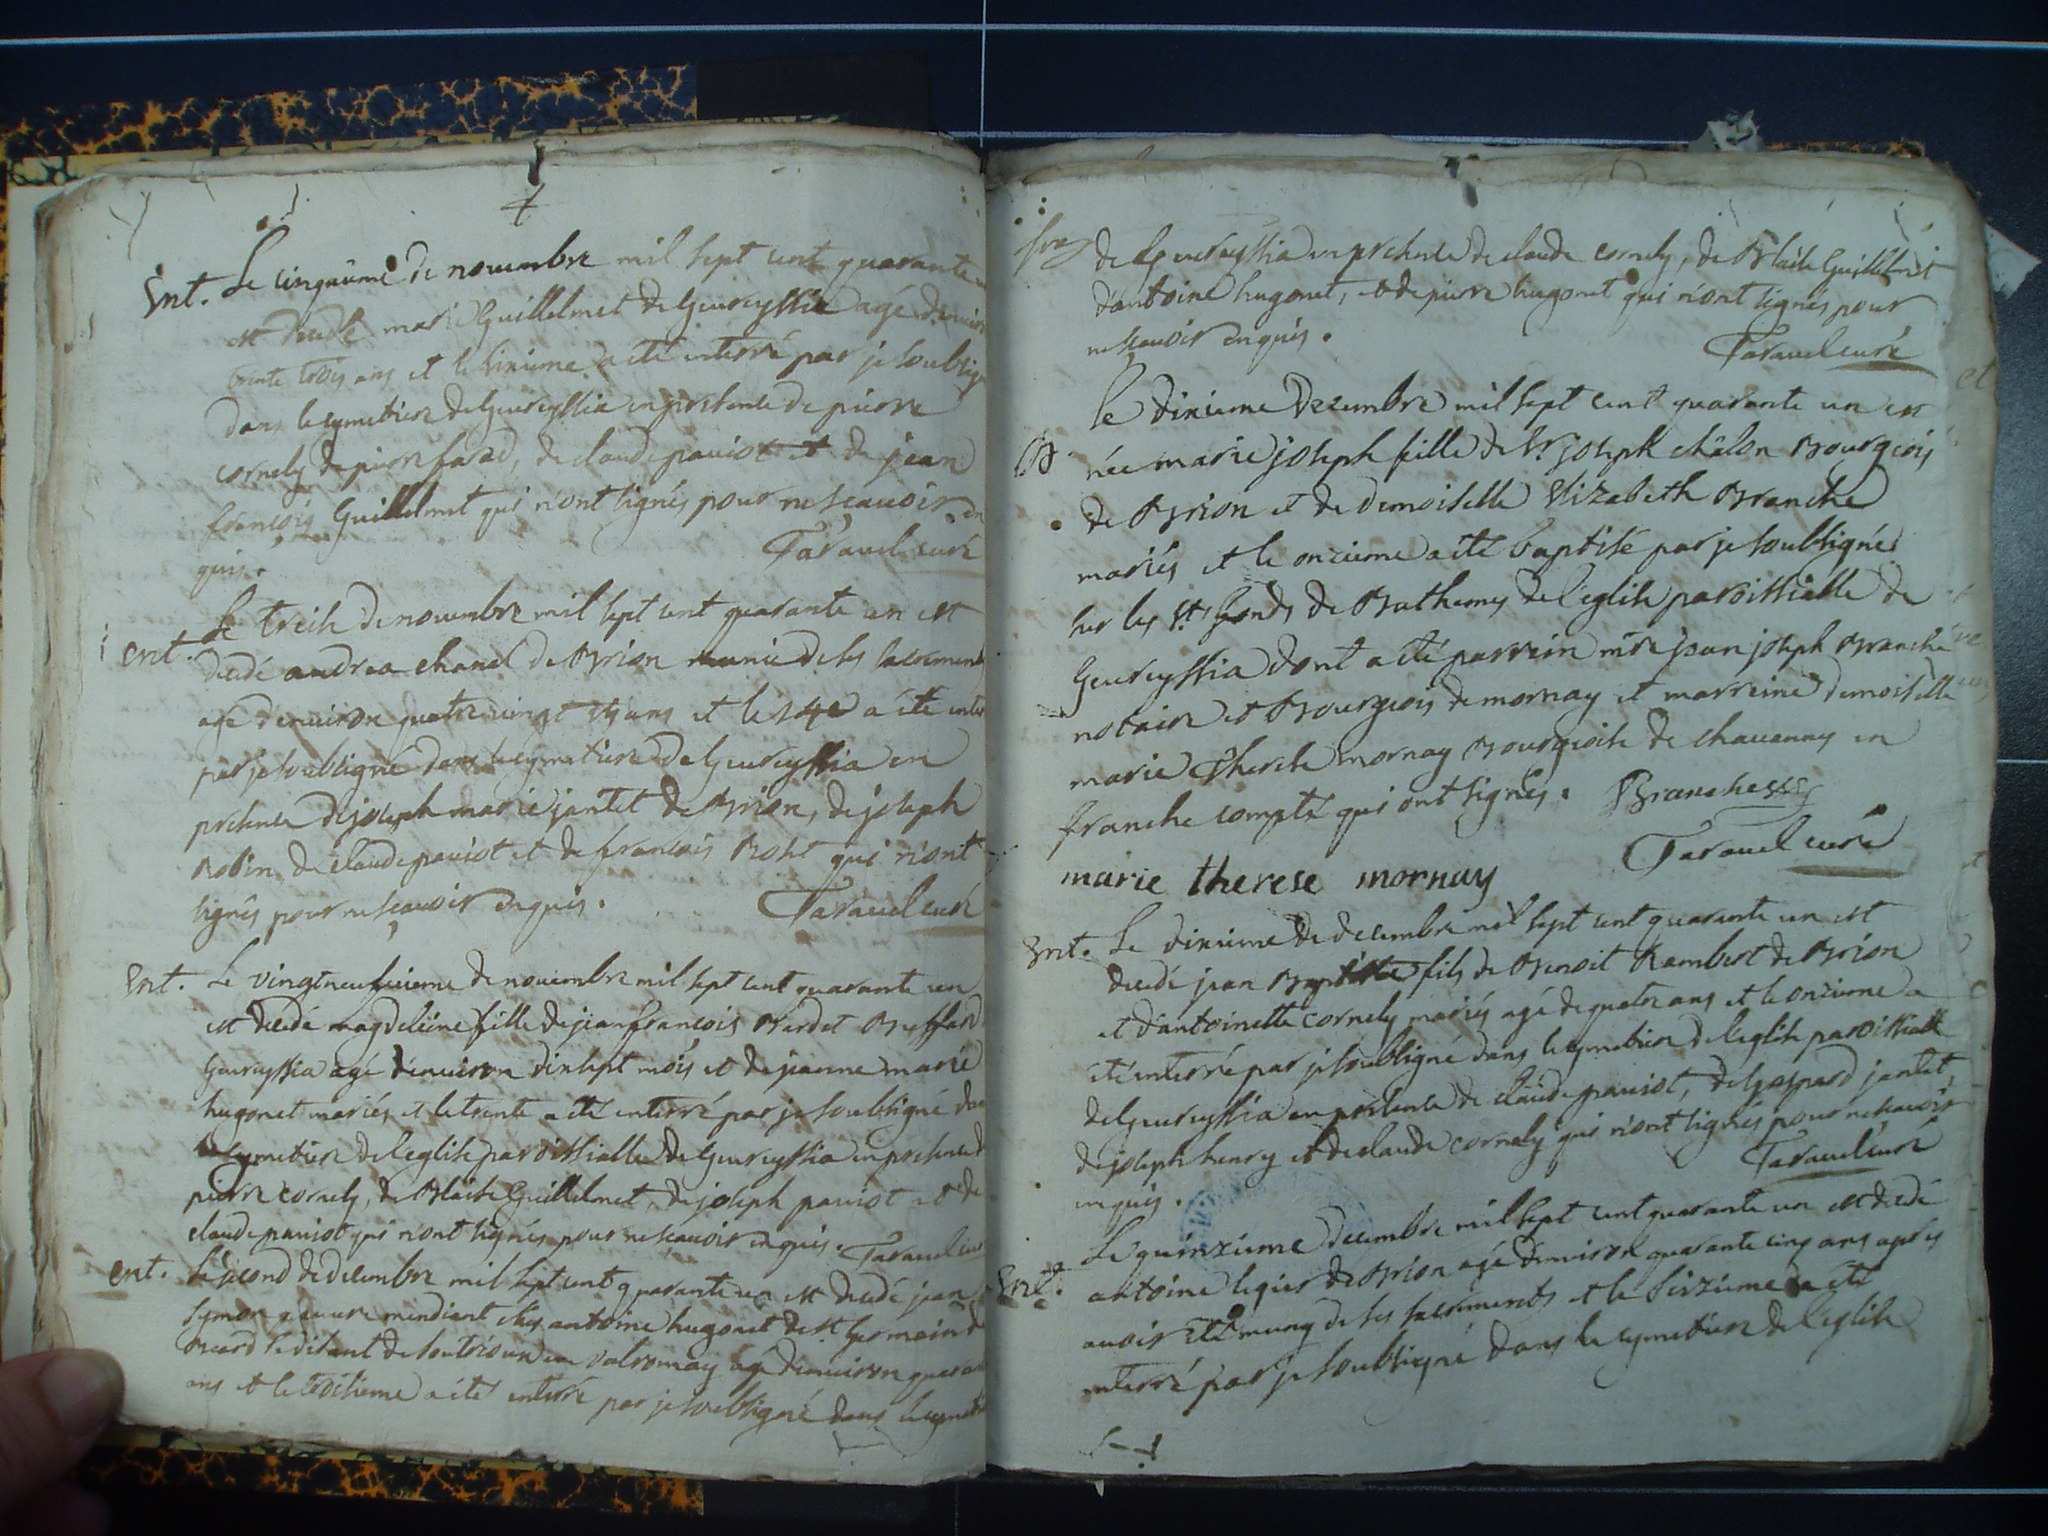 Ent. Le cinquieme de novembre mil sept cent quarante un
est decedé marie Guillelmet de Geureyssia agé denuiron
trente trois ans et le sixieme a été enterré par je soubsigné
dans le cymetiere de Geureyssia en presence de pierre
cornely de pierre farod, de claude pauiot et de jean
francois Guillelmet qui n'ont signés pour ne scauoir en
quis. Tarauel curé
ent. Le treise de nouembre mil sept cent quarante un est
decedé andrea chanel de Brion munie de ses sacrements
agé denuiron quatre vingt six ans et le 14e a été enterré
par je soubsigné dans le cymetiere de Geureyssia en
presence de joseph marie jantet de Brion, de joseph
Robin de claude pauiot et de francois qui n'ont
signés pour ne scauoir enquis. Tarauel curé
Ent. Le vingtneufuieme de nouembre mil sept cent quarante un
est decedé magdeleine fille de jean francois Bardet Buffard
Geureyssia agé denuiron dixsept mois et de jeanne marie
hugonet mariés et le trente a été enterré par je soubsigné dans
le cymetiere de l'eglise paroissialle de Geureyssia en presence de
pierre cornely, de Blaise Guillelmet, de joseph pauiot et de
claude pauiot qui n'ont signés pour ne scauoir enquis. Tarauel curé
ent. Le second de decembre mil sept cent quarante un est decedé jean
symon pauure mendiant ches antoine hugonet de st Germain de
se disant de en valromay agé denuiron quarante
ans et le troisieme a été enterré par je soubsigné dans le cymetiere
de Geureyssia en presence de claude cornely, de Blaise Guillelmet
d'antoine hugonet, et de pierre hugonet qui n'ont signés pour
ne scauoir enquis.
Tarauel curé
Le dixieme decembre mil sept cent quarante un est
B. née marie joseph fille de Sr. joseph châlon Bourgeois
de Brion et de demoiselle Elizabeth Branche
mariés et le onzieme a été baptisé par je soubsigné
sur les sts fonds de Bathemes de l'eglise paroissialle de
Geureyssia dont a été parrein mre jean joseph Branche
notaire et Bourgeois de mornay et marreine demoiselle
marie Therese mornay Bourgeoise de chauannes en
franche compté qui ont signés. Branche
Tarauel curé
marie therese mornay
Ent. Le dixieme de decembre mil sept cent quarante un est
decedé jean Baptiste fils de Benoit Rambert de Brion
et d'antoinette cornely mariés agé de quatre ans et le onzieme a
été enterré par je soubsigné dans le cymetiere de l'eglise paroissialle
de Geureyssia en presence de claude pauiot, de Gaspard jantet,
de joseph henry et de claude cornely qui n'ont signés pour ne scauoir
enquis. Tarauel curé
Ent. Le quinzieme decembre mil sept cent quarante un est decedé
antoine leger de Brion agé denuiron quarante cinq ans apres
auoir été muny de ses sacrements et le seizieme a été
enterré par je soubsigné dans le cymetiere de l'eglise